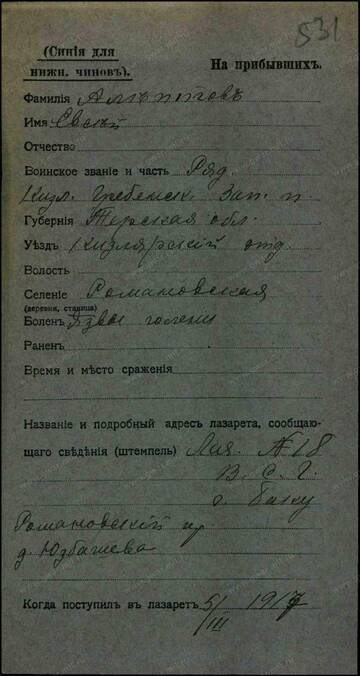 531
(Синія для
нижн. чиновъ).
На прибывшихъ.
Фамилія
Имя Евсей
Отчество
Воинское званіе и часть Ряд.
Кизл. Гребенск. Зап. п.
Губернія Терская обл.
Уѣздъ Кизлярскій отд.
Волость
Селеніе Романовская
(деревня, станица)
Боленъ Язвы голени
Раненъ
Время и мѣсто сраженія
Названіе и подробный адресъ лазарета, сообщаю-
щаго свѣдѣнія (штемпель) Лаз. №18
В. С. Г.
г. Баку
Романовскій пр.
д. Юзбашева
Когда поступилъ въ лазаретъ 5/III 1917